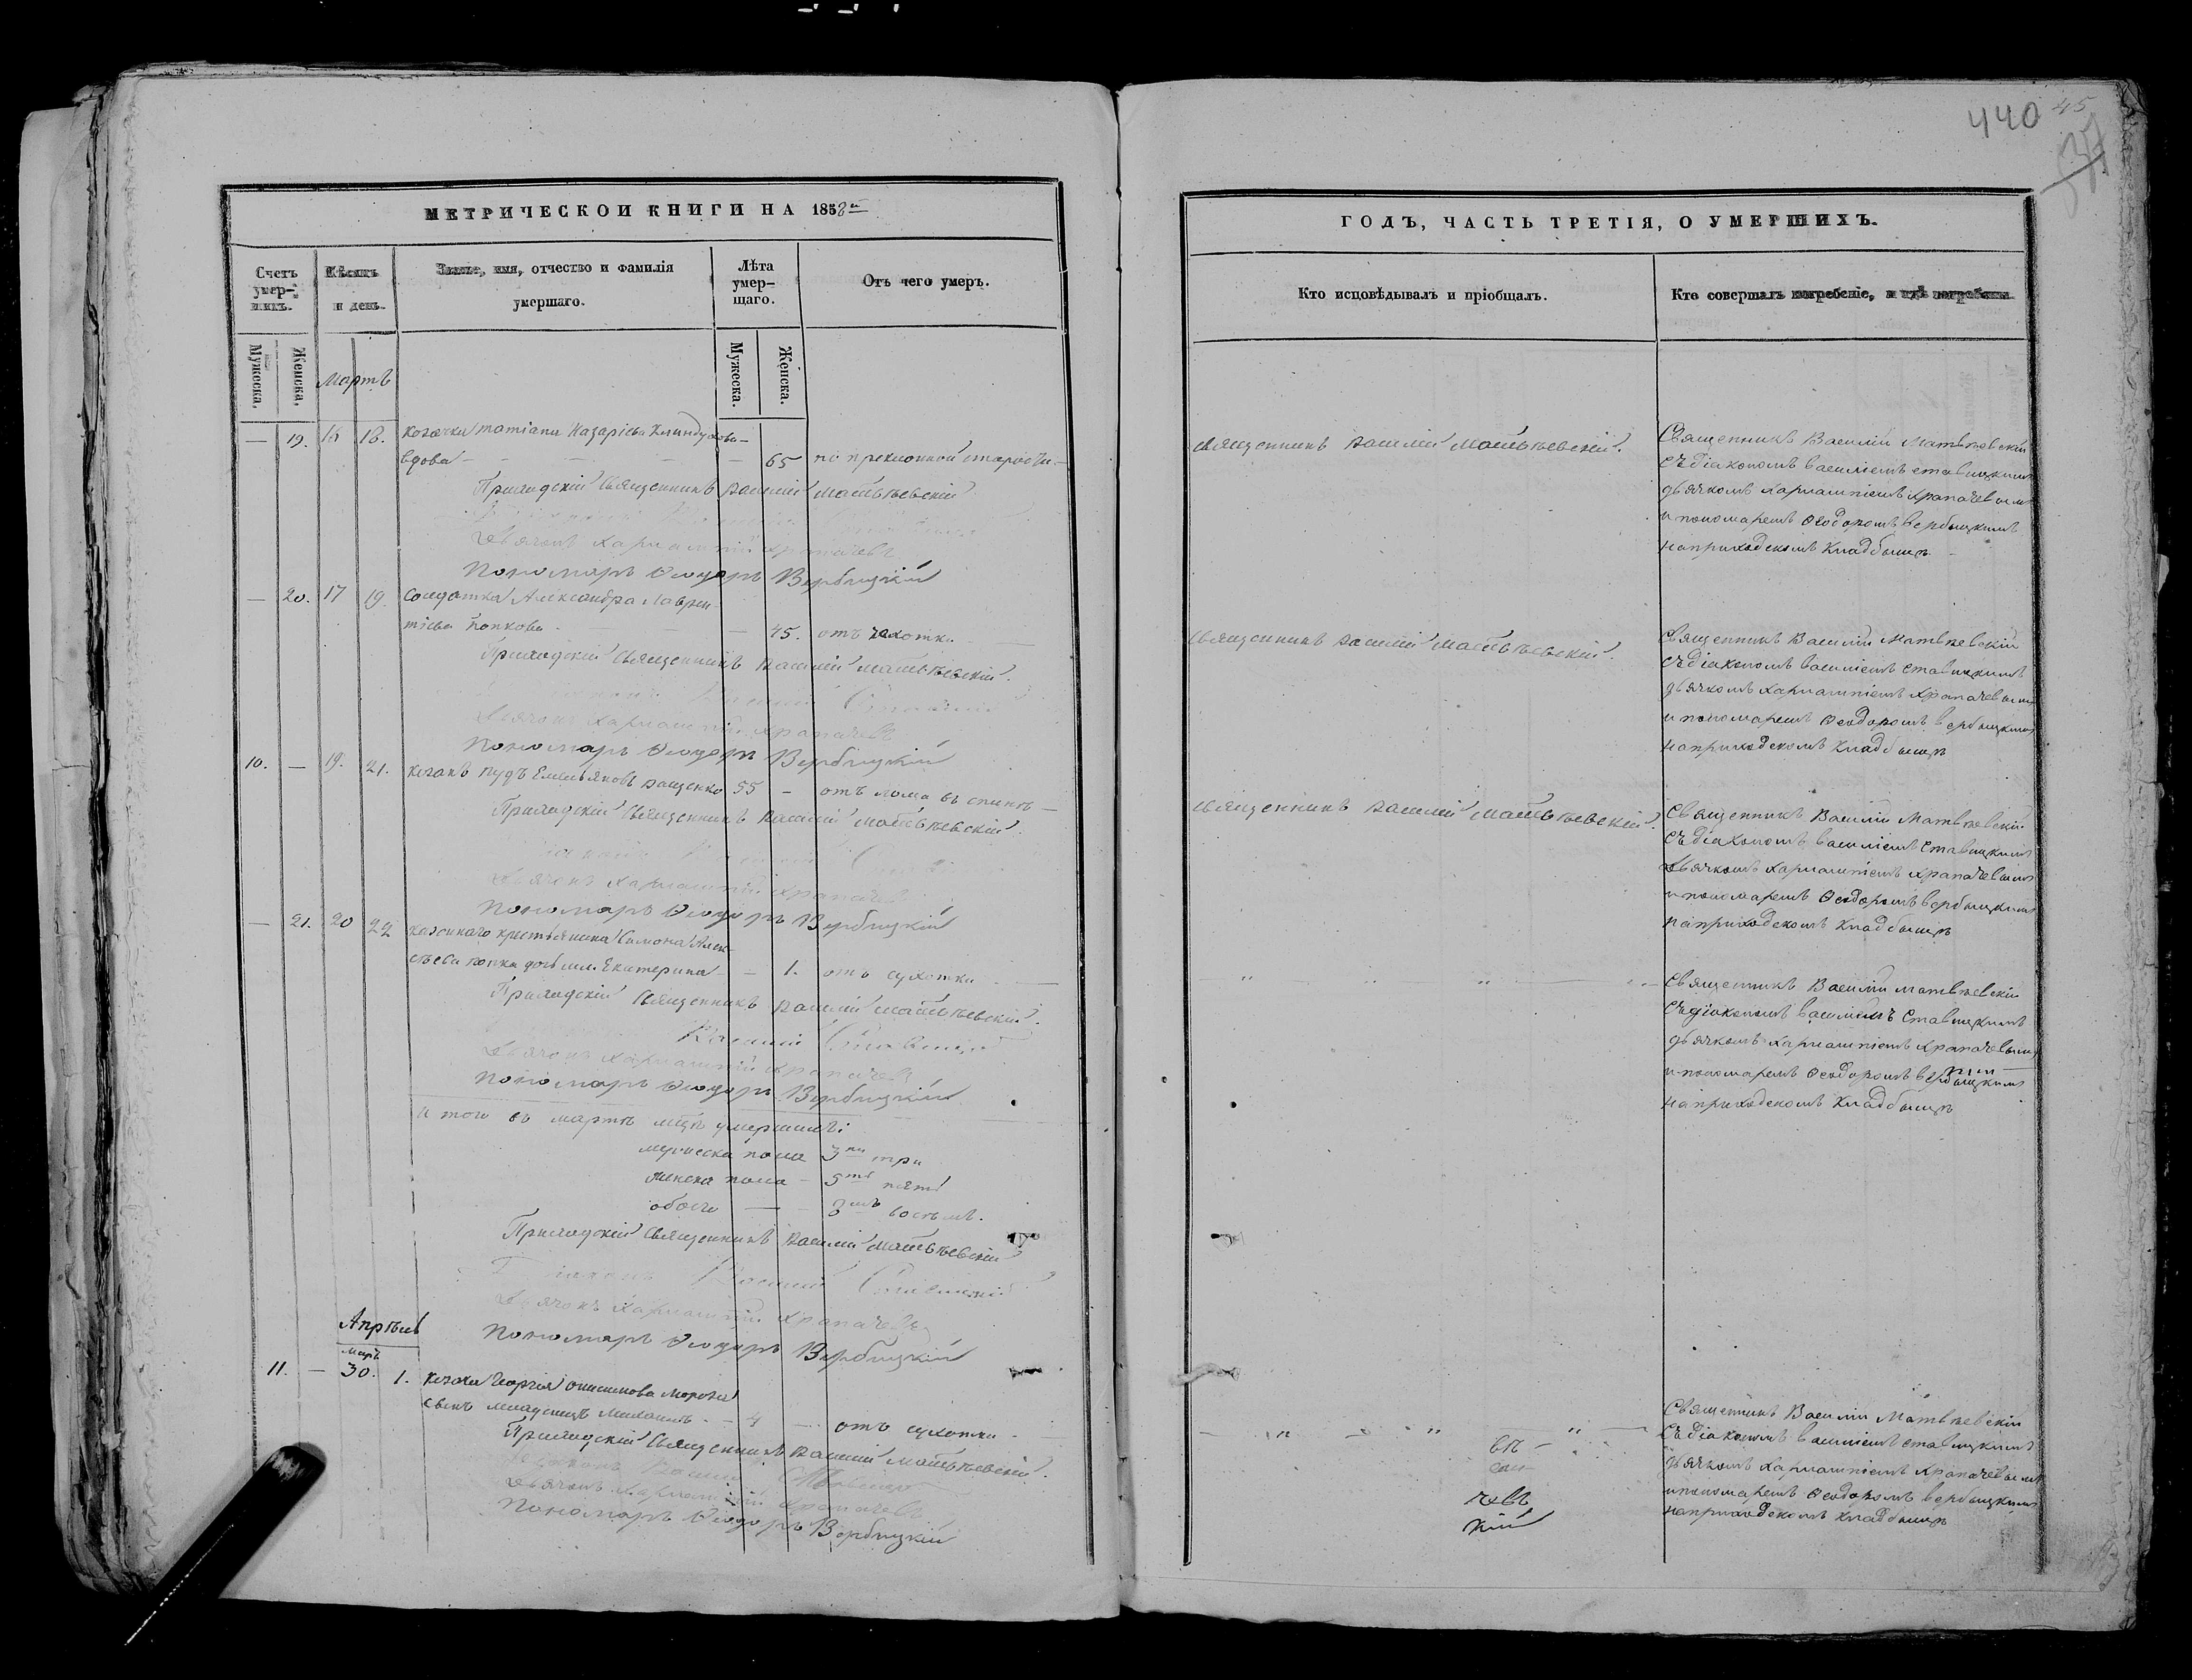 440 45
МЕТРИЧЕСКОЙ КНИГИ НА 1858й
Счетъ умер-шихъ.
Мѣсяцъ и день.
Званіе, имя, отчество и фамилія умершаго.
Лѣта умер-щаго.
Отъ чего умеръ.
Мужеска.
Женска.
Мартъ
Мужеска.
Женска.
— 19. 16 18. козачка Татіана Назаріева
вдова — — — 65 по преклонной старости —
Приходскій Священникъ Василій Матвѣевскій
Дьячокъ Харлампій Храпачевъ
Пономарь Ѳеодоръ Вербицкій
— 20. 17 19. Солдатка Александра Лаврен-
тіева Попкова — — 45. отъ чахотки —
Приходскій Священникъ Василій Матвѣевскій.
Дьячокъ Харлампій Храпачевъ
Пономарь Ѳеодоръ Вербицкій
10. — 19. 21. козакъ Іудъ Емельяновъ Ващенко 55 — отъ лома въ спинѣ —
Приходскій Священникъ Василій Матвѣевскій.
Дьячокъ Харлампій Храпачевъ
Пономарь Ѳеодоръ Вербицкій
— 21. 20 22 казеннаго крестьянина Симона Алек-
сѣева Попка дочь мл. Екатерина — — 1. отъ сухотки —
Приходскій Священникъ Василій Матвѣевскій.
Василій Ставицкій
Дьячокъ Харлампій Храпачевъ
Пономарь Ѳеодоръ Вербицкій
Итого въ мартѣ мцѣ умершихъ:
мужеска пола 3ри три
женска пола — 5ть пять
обоего — 8мь восемь.
Приходскій Священникъ Василій Матвѣевскій
Діаконъ Василій Ставицкій
Дьячокъ Харлампій Храпачевъ
Пономарь Ѳеодоръ Вербицкій
Апрѣль
Мартъ
11. — 30. 1. козака Георгія Онисимова Мороза
сынъ младенецъ Михаилъ — 4 — отъ сухотки —
Приходскій Священникъ Василій Матвѣевскій.
Діаконъ Василій Ставицкій
Дьячокъ Харлампій Храпачевъ
Пономарь Ѳеодоръ Вербицкій
ГОДЪ, ЧАСТЬ ТРЕТІЯ, О УМЕРШИХЪ.
Кто исповѣдывалъ и пріобщалъ.
Кто совершалъ погребеніе, и гдѣ погребены.
Священникъ Василій Матвѣевскій.
Священникъ Василій Матвѣевскій
съ діакономъ Василіемъ Ставицкимъ
дьячкомъ Харлампіемъ Храпачевымъ
и пономаремъ Ѳеодоромъ Вербицкимъ
на приходскомъ кладбищѣ
Священникъ Василій Матвѣевскій.
Священникъ Василій Матвѣевскій
съ діакономъ Василіемъ Ставицкимъ
дьячкомъ Харлампіемъ Храпачевымъ
и пономаремъ Ѳеодоромъ Вербицкимъ
на приходскомъ кладбищѣ
Священникъ Василій Матвѣевскій.
Священникъ Василій Матвѣевскій
съ діакономъ Василіемъ Ставицкимъ
дьячкомъ Харлампіемъ Храпачевымъ
и пономаремъ Ѳеодоромъ Вербицкимъ
на приходскомъ кладбищѣ
Священникъ Василій Матвѣевскій
съ діакономъ Василіемъ Ставицкимъ
дьячкомъ Харлампіемъ Храпачевымъ
и пономаремъ Ѳеодоромъ Вербицкимъ
на приходскомъ кладбищѣ
Священникъ Василій Матвѣевскій
съ діакономъ Василіемъ Ставицкимъ
дьячкомъ Харлампіемъ Храпачевымъ
и пономаремъ Ѳеодоромъ Вербицкимъ
на приходскомъ кладбищѣ
чевъ
кій